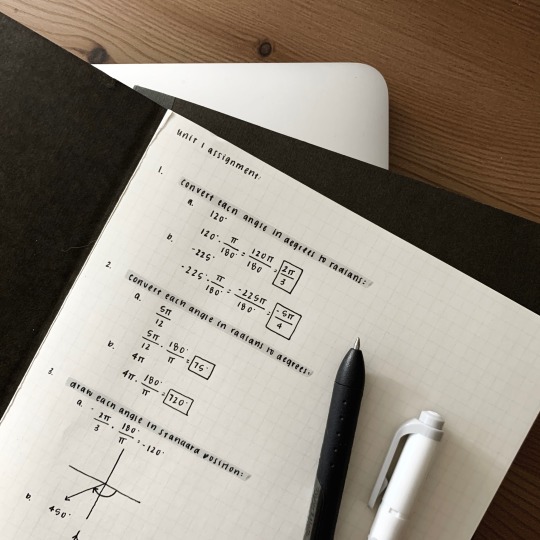 unit 1 assignment:
1.
convert each angle in degrees to radians:
a. 120°
120° · π/180° = 120π/180° = 2π/3
b. -225°
-225° · π/180° = -225π/180° = -5π/4
2.
convert each angle in radians to degrees:
a. 5π/12
5π/12 · 180°/π = 75°
b. 4π
4π · 180°/π = 720°
3.
draw each angle in standard position:
a. -2π/3 · 180°/π = -120°
b. 450°